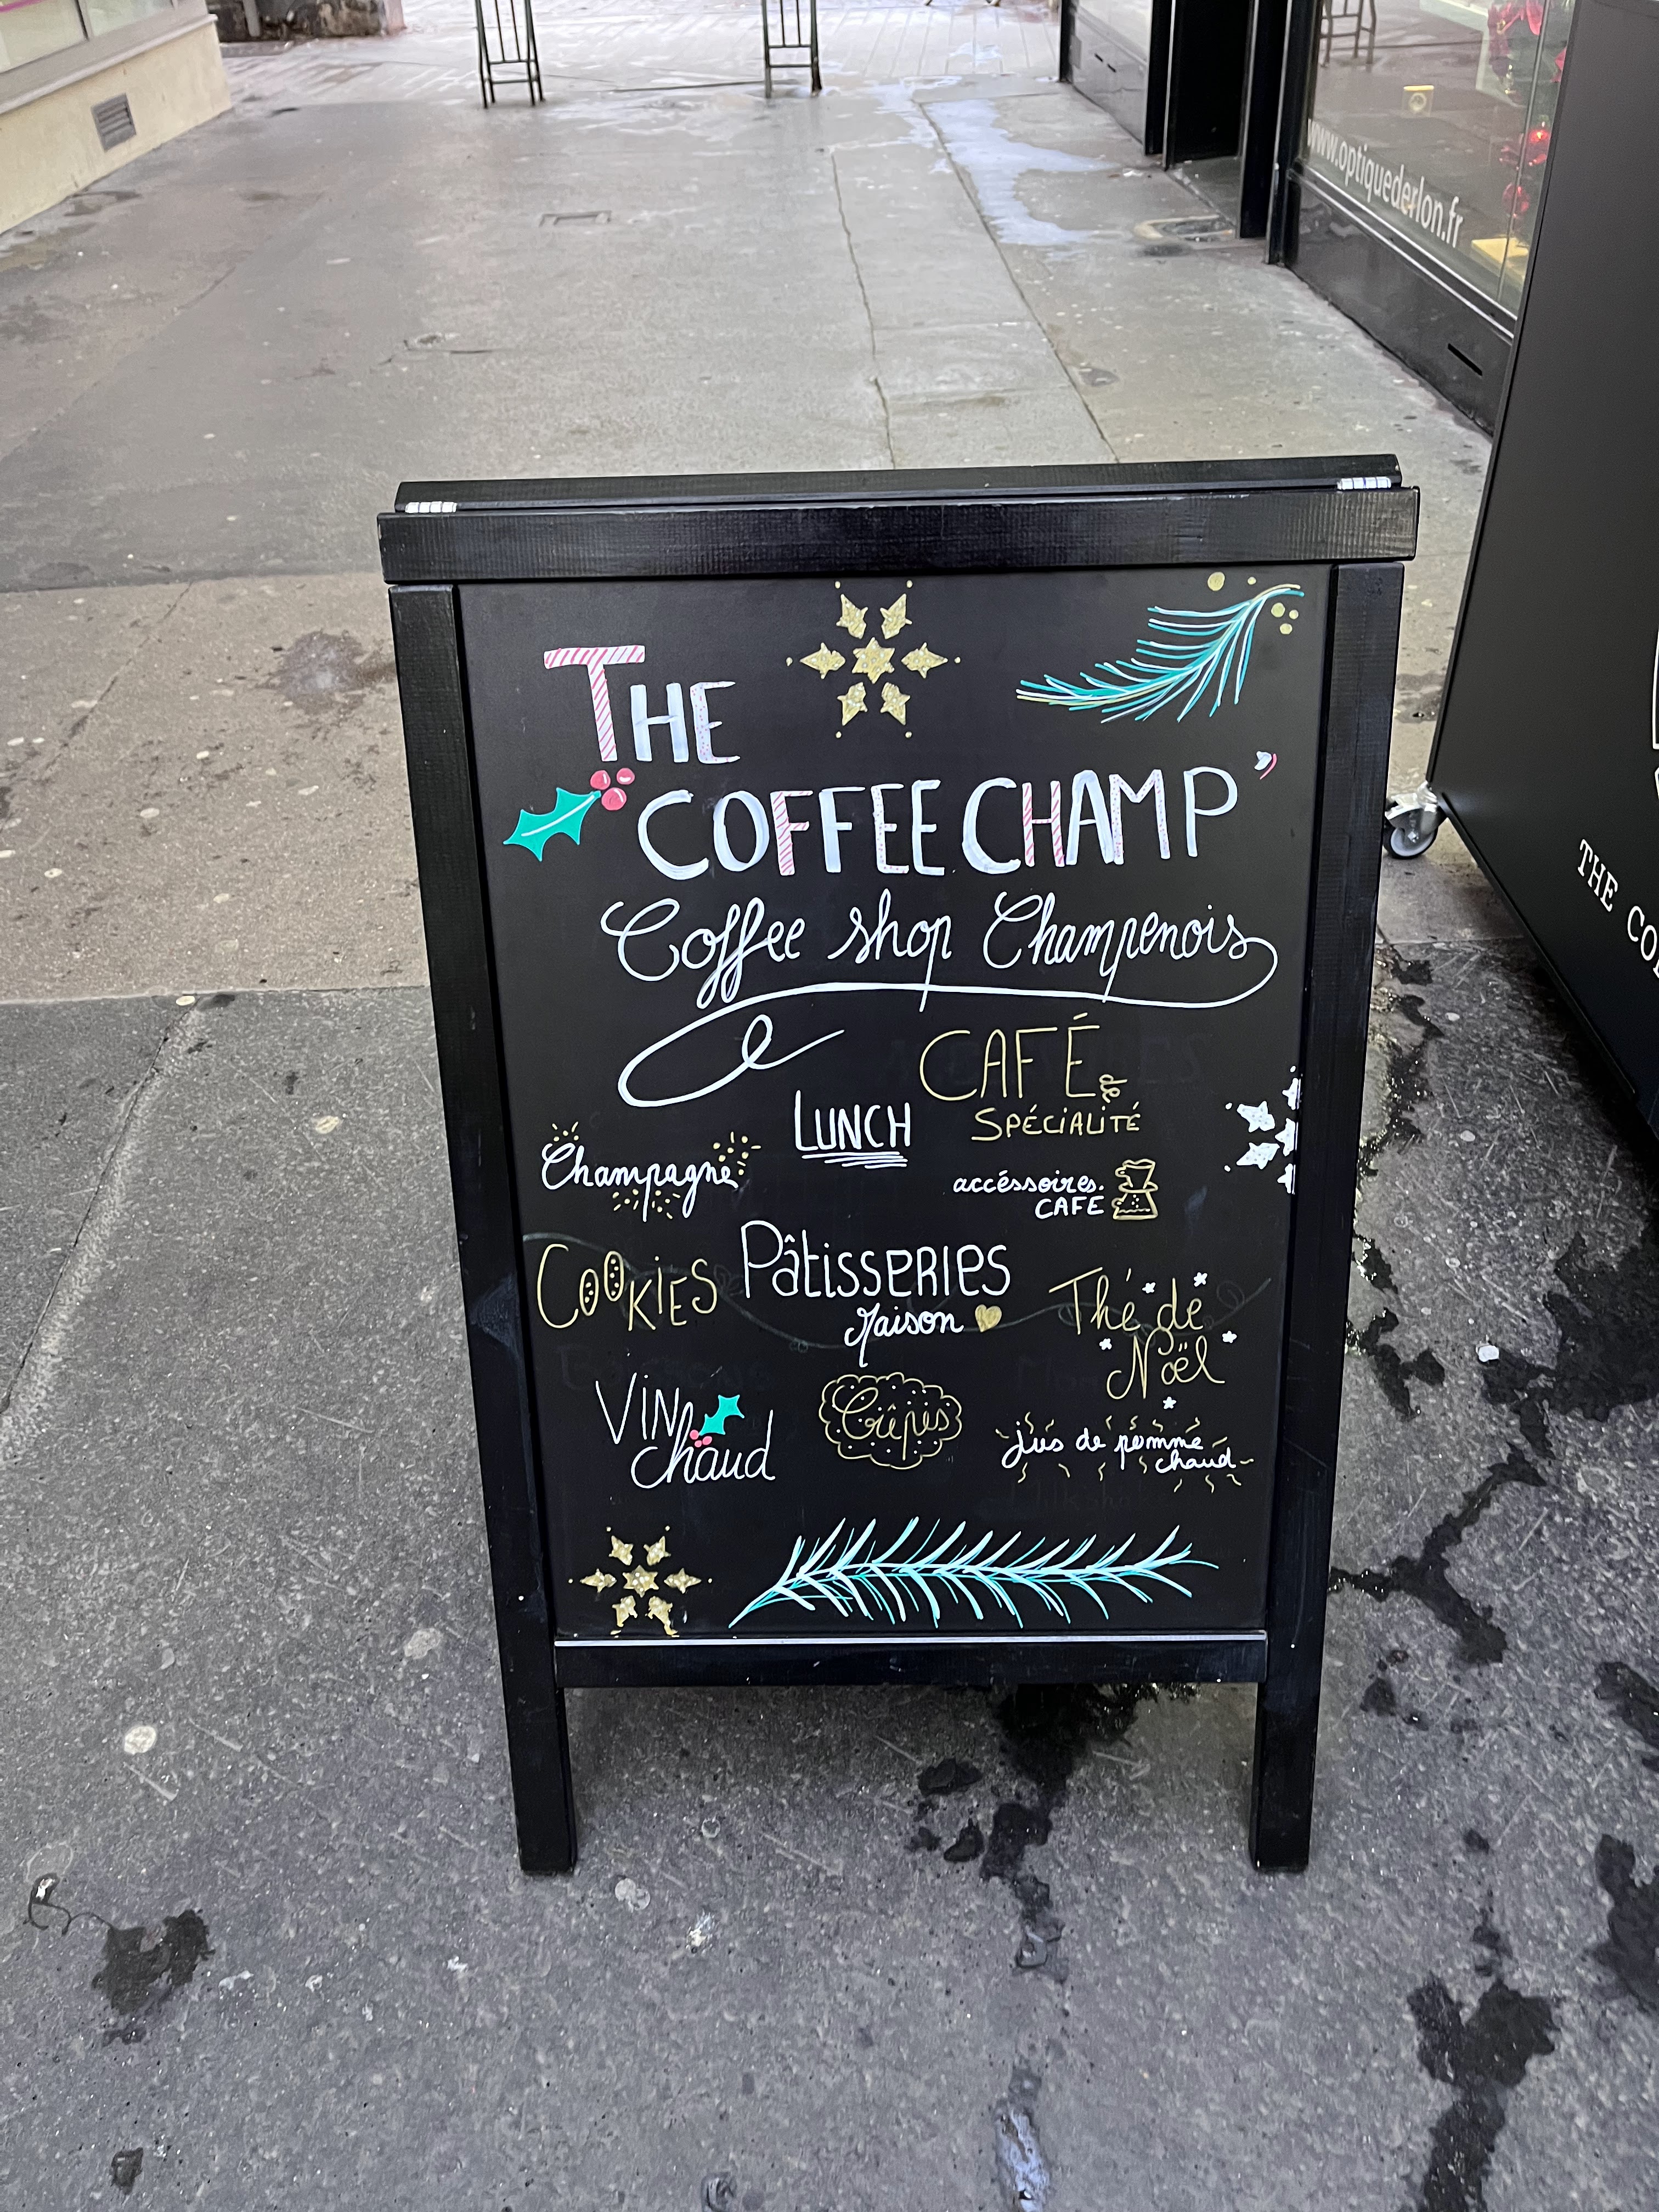 www.optiquederlon.fr
THE
COFFEE CHAMP'
Coffee shop Champenois
CAFÉ
de
SPÉCIALITÉ
LUNCH
Champagne
accéssoires
CAFE
COOKIES
PâTISSERIES
Maison
Thé de
Noël
VIN
chaud
Crêpes
jus de pomme
chaud
THE CO